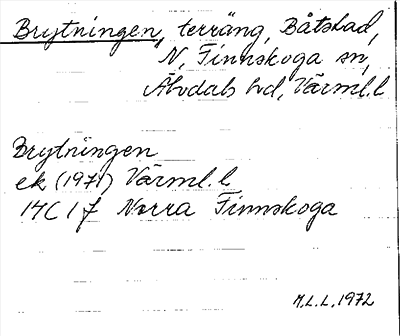 Brytningen, terräng, Båtstad,
N. Finnskoga sn,
Älvdals hd, Värml. l
Brytningen
ek (1971) Värml. l
17C 1f Norra Finnskoga
M.L.L. 1972